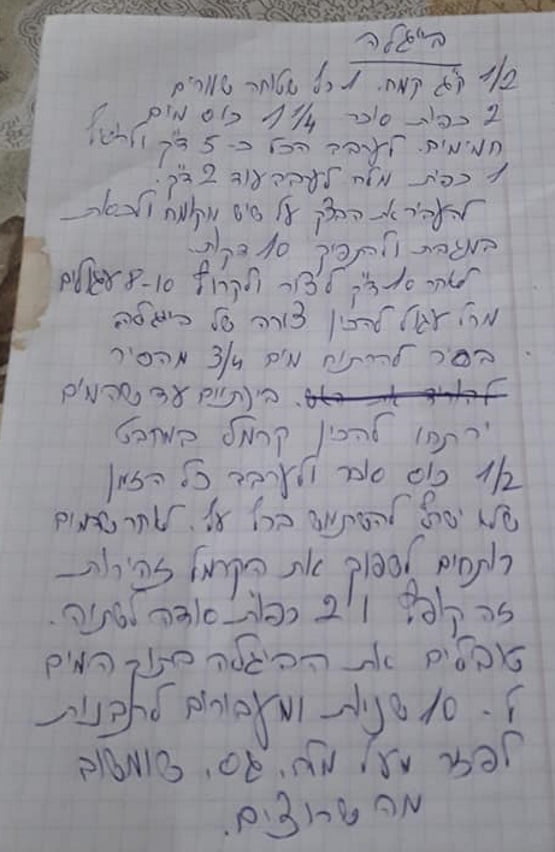 בייגלה
1/2 קג קמח. 1 כל שטוחה שמרים
2 כפות סוכר 1/4 1 כוס מים
חמימים. לערבב הכל כ- 5 דק
1 כפית מלח לערבב עוד 2 דק.
להעביר את הבצק על שיש מקומח ולכסות
במגבת ולהתפיח 10 דקות.
לאחר 10 דק לצור ולקרוץ 8-10 עגולים
מכל עגול להכין צורה של בייגלה
בסיר להרתיח מים 3/4 מהסיר
בינתיים עד שהמים
ירתחו להכין קרמל במחבט
1/2 כוס סוכר ולערבב כל הזמן
שלא ישרף להשתמש בכל על. לאחר שהמים
רותחים לשפוך את הקרמל זהירות
זה קופץ ו 2 כפות סודה לשתיה.
טובלים את הבייגלה בתוך המים
ל- 10 שניות ומעבירים לתבנית
לפזר מעל מלח, גס, שומשום
מה שרוצים.